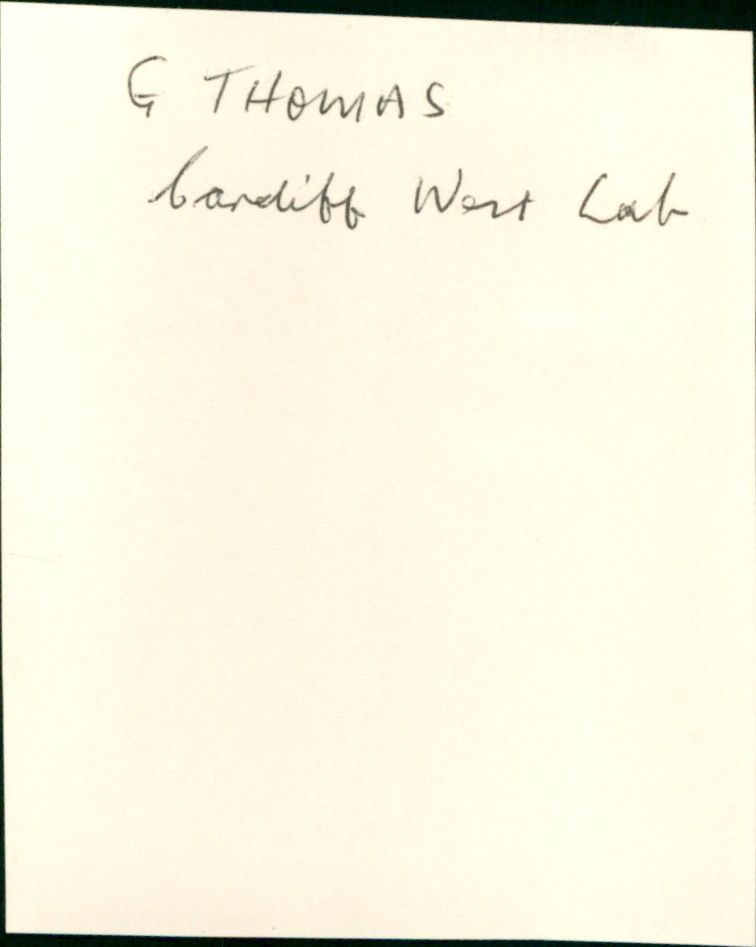 G THOMAS
Cardiff West Lab